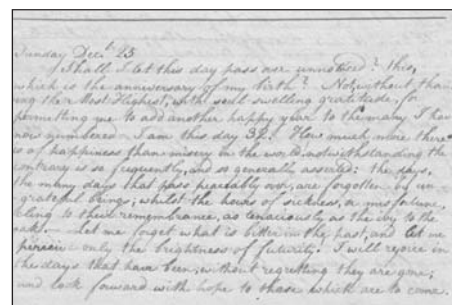 Sunday Decr. 25
Shall I let this day pass over unnoticed? this,
which is the anniversary of my birth? Not without than
ing the Most Highest, with soul swelling gratitude, for
permitting me to add another happy year to the many I hav
now numbered - I am this day 32. How much more there
is of happiness than misery in the world, notwithstanding the
contrary is so frequently, and so generally asserted: the days,
the many days that pass peaceably over, are forgotten by un
grateful beings; whilst the hours of sickness, or misfortune,
cling to their remembrance, as tenaciously as the ivy to the
oak. - Let me forget what is bitter in the past, and let me
only the brightness of futurity. I will rejoice in
the days that have been, without regretting they are gone;
and look forward with hope to those which are to come.